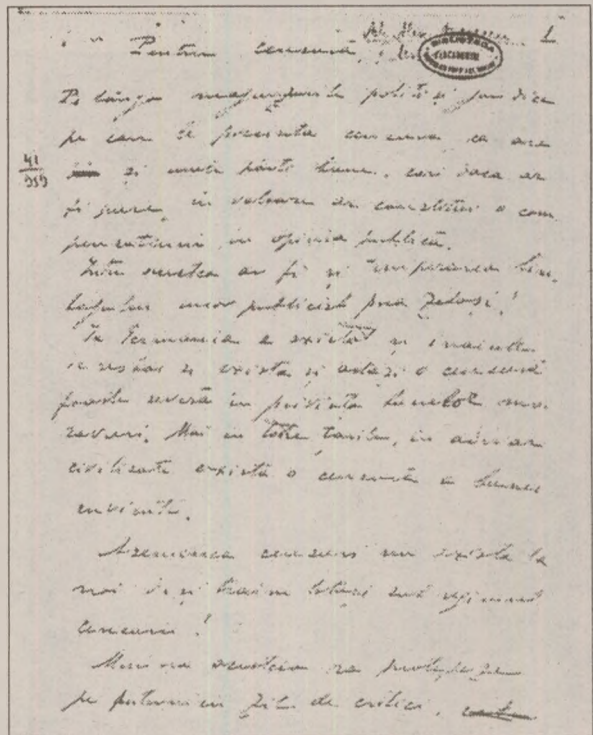 1
Pentru cenzura
BIBLIOTECA
Pe lângă neajunsurile politice și juridice
pe care le prezintă cenzura, ea are
și unele părți bune, cari dacă ar
fi puse în valoare ar constitui o com
pensațiune în opinia publică.
41
959
Intre acestea ar fi și temperarea lim
bagiului unor publiciști prea zeloși!
In Germania a existat și înainte
de răsboi și există și astăzi o cenzură
foarte severă în privința bunelor mo
ravuri. Mai în toate țările,
civilizate există o cenzură a bunei
cuviințe.
cenzură nu există la
noi deși trăim totuși sub regimul
cenzurii!
pe puternicii zilei de critici.